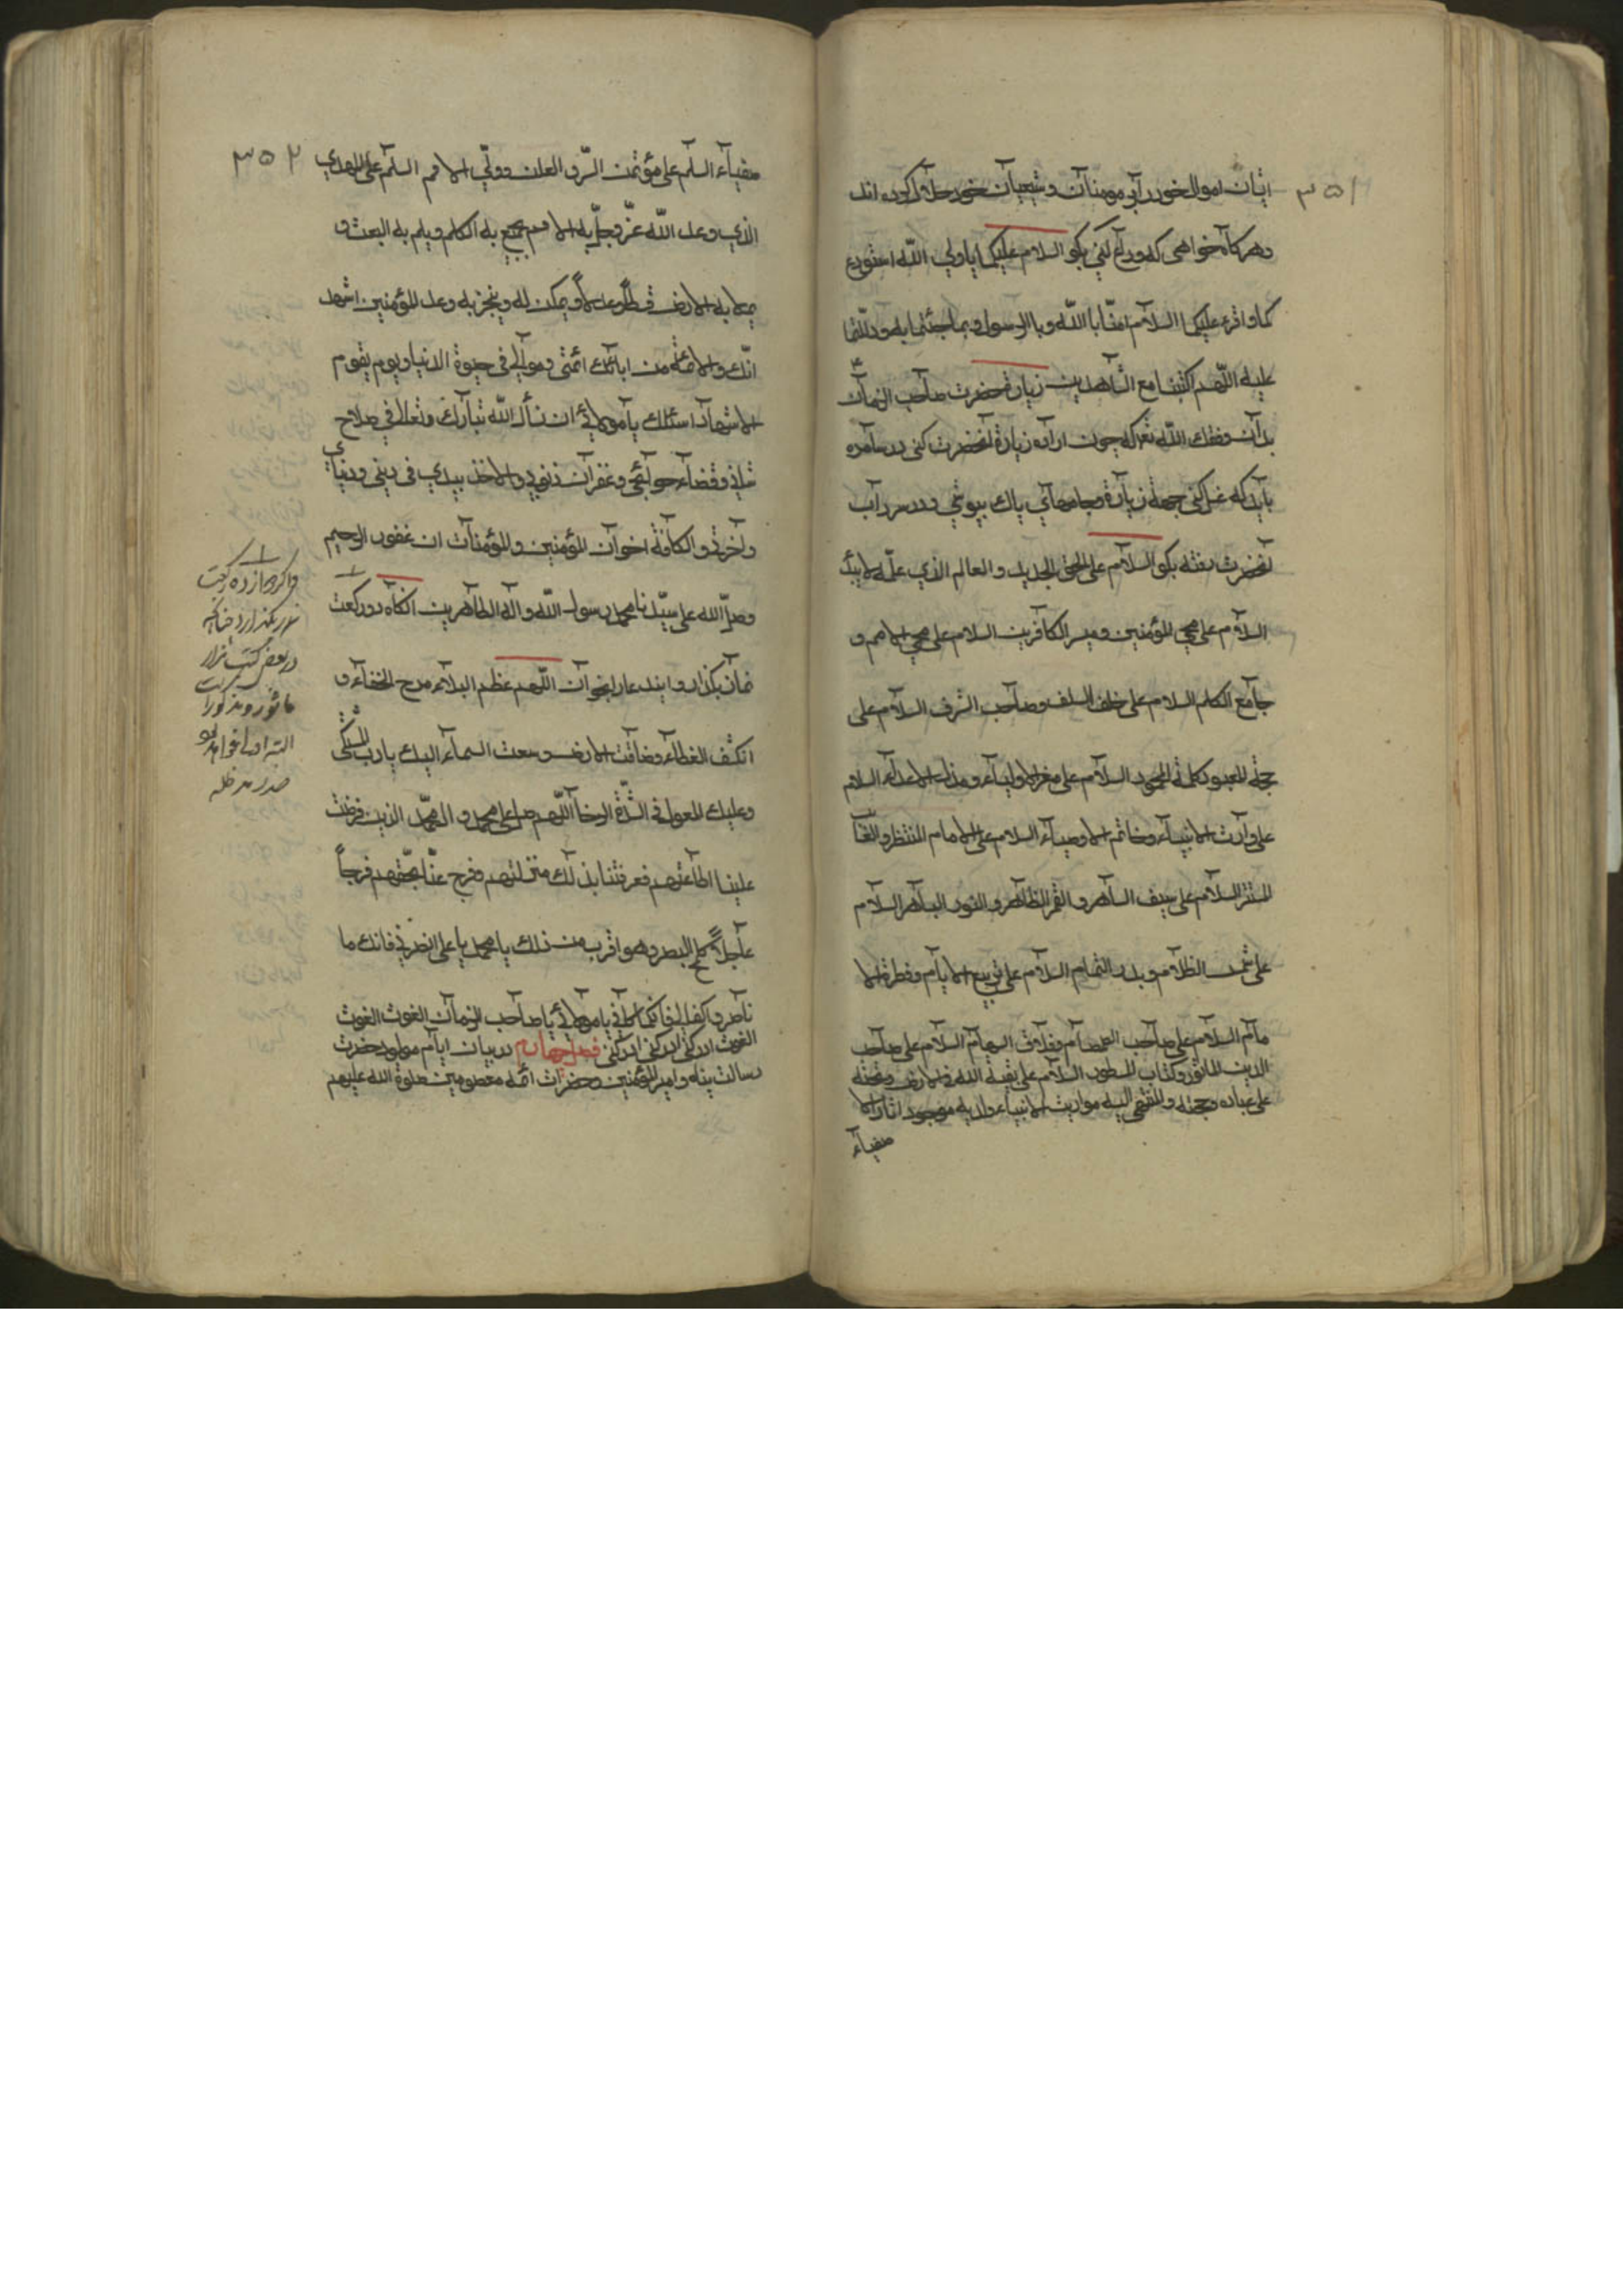 ۳۵۱
ایشان اموال خود را بر مومنان و شیعیان خود حلال کرده اند
و هر کاه خواهی که وداع کنی بکو السلام علیکما یا ولی الله استودع
کما و اقرء علیکما السلام امنّا بالله و بالرسول و بما جئتما به و دللتما
علیه اللهم اکتبنا مع الشاهدین زیارة حضرت صاحب الزمان
بدان وفقک الله که چون اراده زیارة آنحضرت کنی در سامره
باید که غسل کنی جهة زیارة و جامهای پاک بپوشی و در سرداب
آنحضرت رفته بکو السلام علی الحق الجدید و العالم الذی علمه لا یبید
السلام علی محی المؤمنین و مبیر الکافرین السلام علی محی الامم و
جامع الکلم السلام علی خلف السلف و صاحب الشرف السلام علی
حجة المعبود کلمة المحمود السلام علی معز الاولیاء و مذل الاعداء السلام
علی وارث الانبیاء و خاتم الاوصیاء السلام علی الامام المنتظر و الغا
المستتر السلام علی سیف الشاهر و القمر الظاهر و النور الباهر السلام
علی شمس الظلام و بدر التمام السلام علی ربیع الایام و فطرة الا
مام السلام علی صاحب الصمصام و فلاق الهام السلام علی صاحب
الدین الماثور و کتاب المسطور السلام علی بقیة الله فی الارض و حجته
علی عباده و حجته و المنتهی الیه مواریث الانبیاء و لدیه موجود اثار الا
صفیاء
۳۵۲
صفیاء السلم علی مؤتمن السّر و العلن و ولی الامر السلم علی المهدی
الذی وعد الله عزّ و جلّ به الامم یجمع به الکلم و یلم به الشعث و
یملا به الارض قسطاً و عدلاً و یمکن له و ینجز به وعد المؤمنین اشهد
انّک و الائمة من ابائک ائمتی و موالی فی حیوة الدنیا و یوم یقوم
الاشهاد اسئلک یا مولای ان تسأل الله تبارک و تعالی فی صلاح
شانی و قضاء حوائجی و غفران ذنوبی و الاخذ بیدی فی دینی و دنیای
و اخرتی و الکافة اخوان المؤمنین و المؤمنات ان غفور الرحیم
و صلّ الله علی سیّدنا محمد رسول الله و اله الطاهرین انکاه دو رکعت
نماز بکذار و ایندعا را بخوان اللّهم عظم البلاء و برح الخفاء و
انکشف الغطاء و ضاقت الارض و منعت السماء الیک یا رب المشتکی
و علیک المعول فی الشّدة و الرخاء اللّهم صل علی محمد و ال محمّد الذین فرضت
علینا اطاعتهم فعرفتنا بذلک منزلتهم ففرج عنّا بحقّهم فرجاً
عاجلاً کلمح البصر و هو اقرب من ذلک یا محمد یا علی انصرنی فانکما
ناصری اکفیانی فانکما کافی یا مولای یا صاحب الزمان الغوث الغوث
الغوث ادرکنی ادرکنی ادرکنی فصل چهارم در بیان ایام مولود حضرت
رسالت پناه و امیر المؤمنین و حضرات ائمه معصومین صلوة الله علیهم
و اکر دوازده رکعت
نماز بکذارد چنانچه
در بعض کتب مزار
ماثور و مذکور است
البته
مد ظله